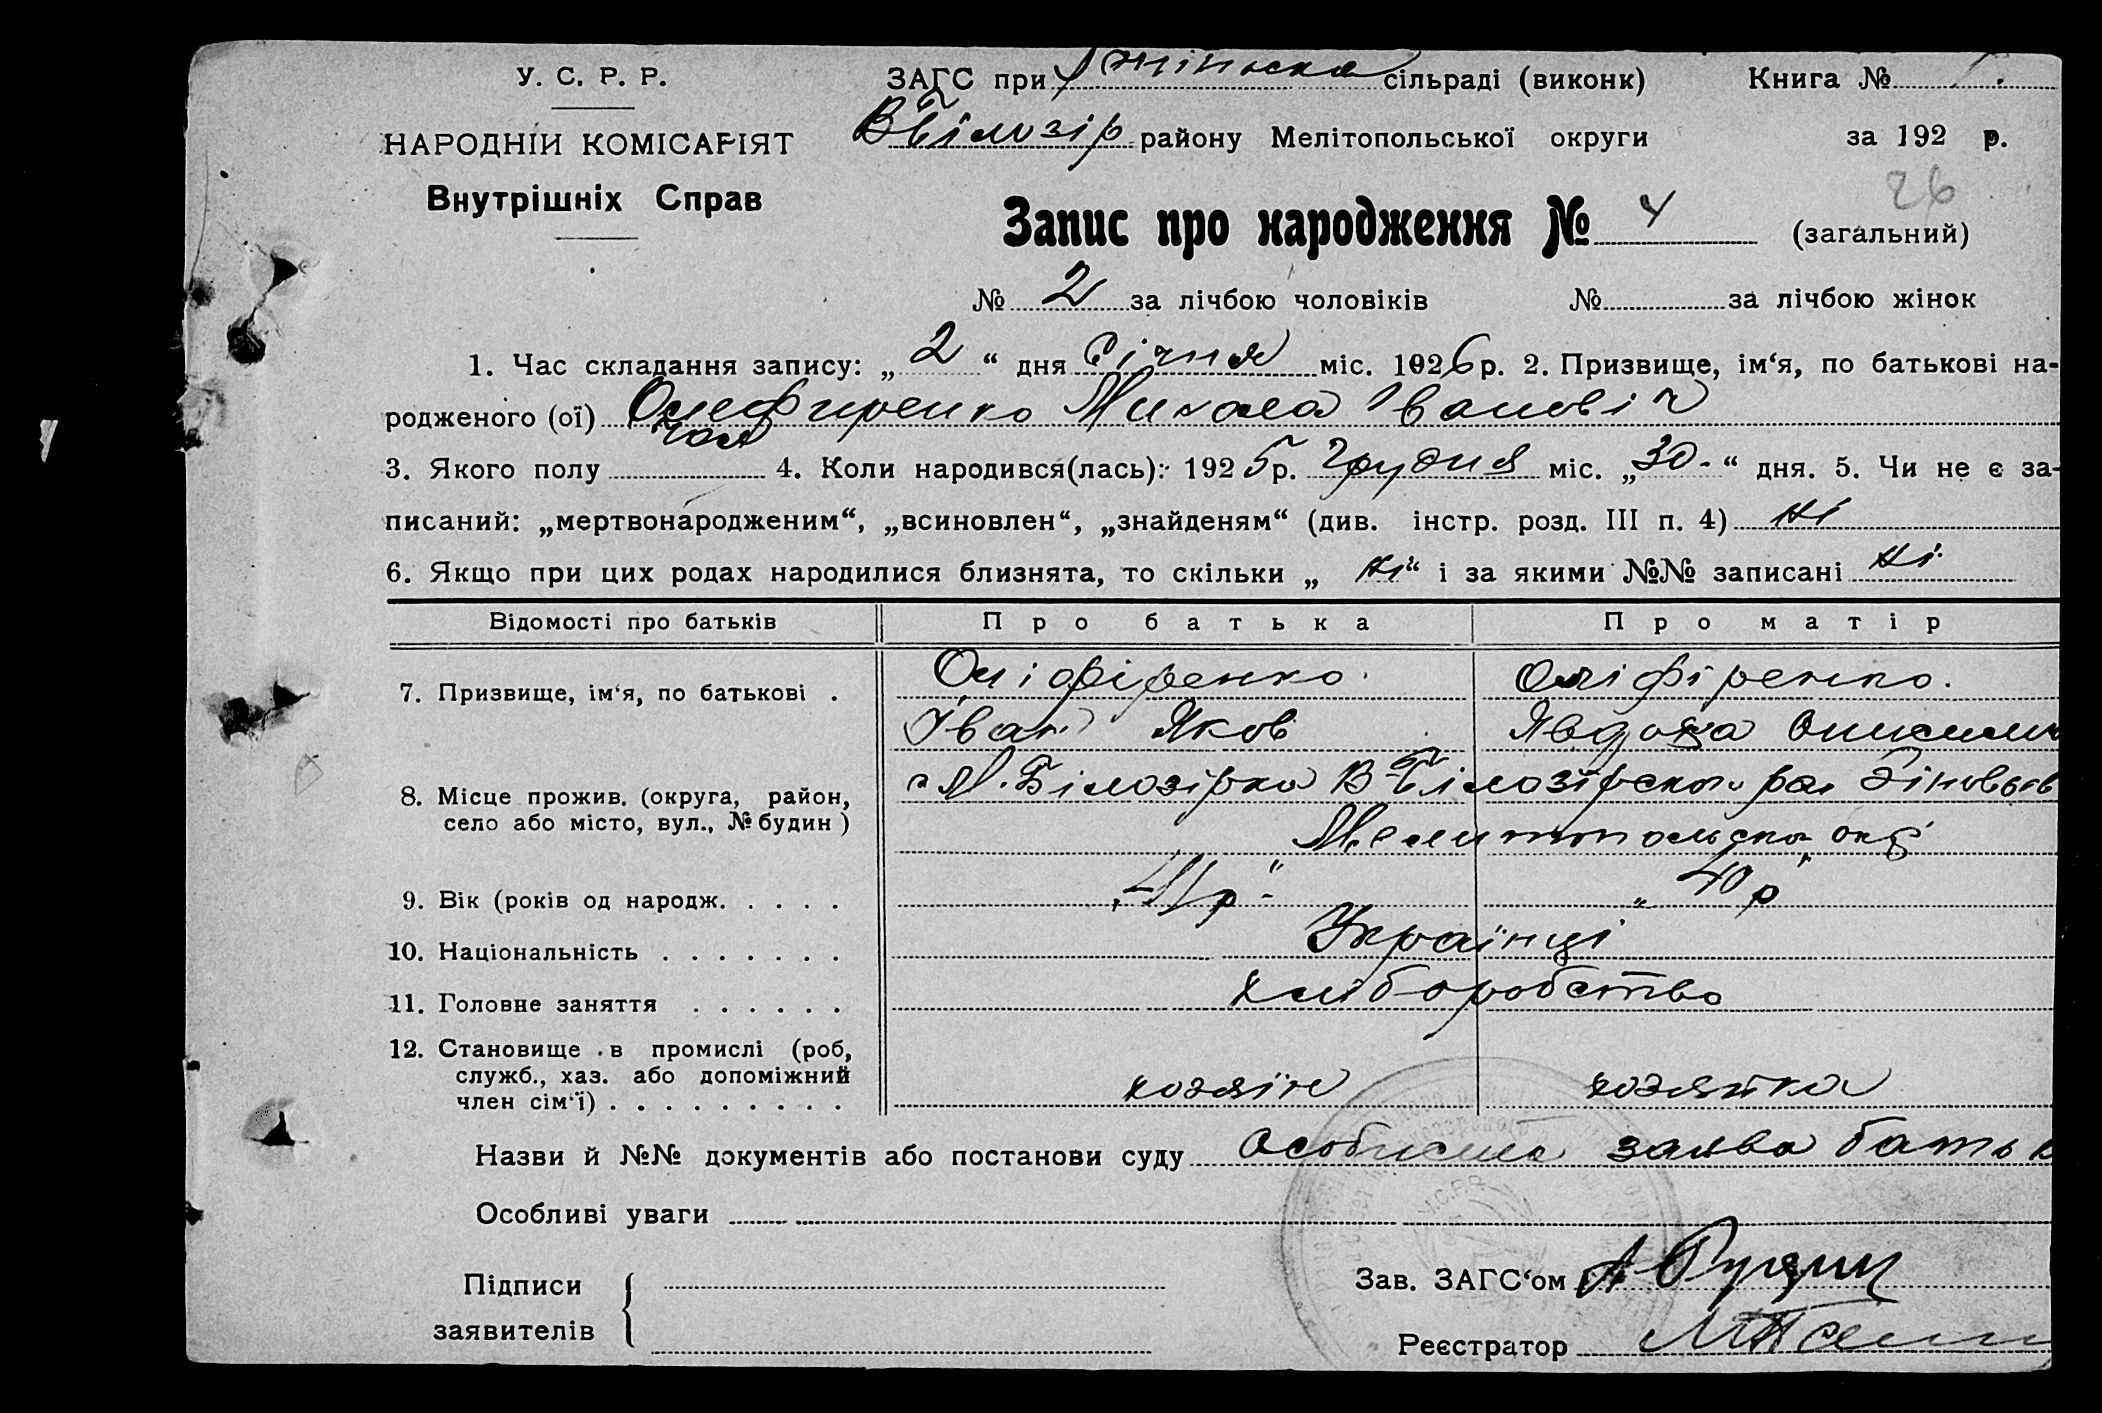 У. С. Р. Р.
НАРОДНІЙ КОМІСАРІЯТ
Внутрішніх Справ
ЗАГС при сільраді (виконк) Книга №
В Білозір району Мелітопольської округи за 192 р.
26
Запис про народження № 4 (загальний)
№ 2 за лічбою чоловіків № за лічбою жінок
1. Час складання запису: „ 2 “ дня Січня міс. 1926 р. 2. Призвище, ім‘я, по батькові на-
родженого (ої) Олефиренко Михала Іванович
3. Якого полу чол 4. Коли народився(лась): 1925 р. Грудня міс. „ 30 “ дня. 5. Чи не є за-
писаний: „мертвонародженим“, „всиновлен“, „знайденям“ (див. інстр. розд. III п. 4) ні
6. Якщо при цих родах народилися близнята, то скільки „ ні “ і за якими №№ записані ні
Відомості про батьків Про батька Про матір
7. Призвище, ім‘я, по батькові . Оліфіренко. Оліфіренко.
Іван Яков Явдоха
8. Місце прожив. (округа, район, М. Білозірка В-Білозірськ ра
село або місто, вул., № будин) Мелитопольска окр
9. Вік (років од народж. . . . . . „41 р“ „40 р“
10. Національність . . . . . . . Українці
11. Головне заняття . . . . . . хліборобство
12. Становище в промислі (роб,
служб., хаз. або допоміжний хозяїн хозяйка
член сім‘ї) . . . . . . . . .
Назви й №№ документів або постанови суду Особиста заява батьк
Особливі уваги
Підписи Зав. ЗАГС‘ом
заявителів Реєстратор